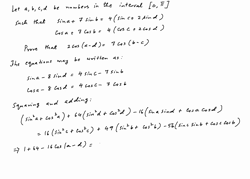 Let a, b, c, d be numbers in the interval [0, π]
such that sin a + 7 sin b = 4(sin c + 2 sin d)
cos a + 7 cos b = 4(cos c + 2 cos d)
Prove that 2 cos(a-d) = 7 cos(b-c)
The equations may be written as:
sin a - 8 sin d = 4 sin c - 7 sin b
cos a - 8 cos d = 4 cos c - 7 cos b
Squaring and adding:
(sin²a + cos²a) + 64(sin²d + cos²d) - 16(sin a sin d + cos a cos d)
= 16(sin²c + cos²c) + 49(sin²b + cos²b) - 56(sin c sin b + cos c cos b)
⇒ 1 + 64 - 16 cos(a-d) =